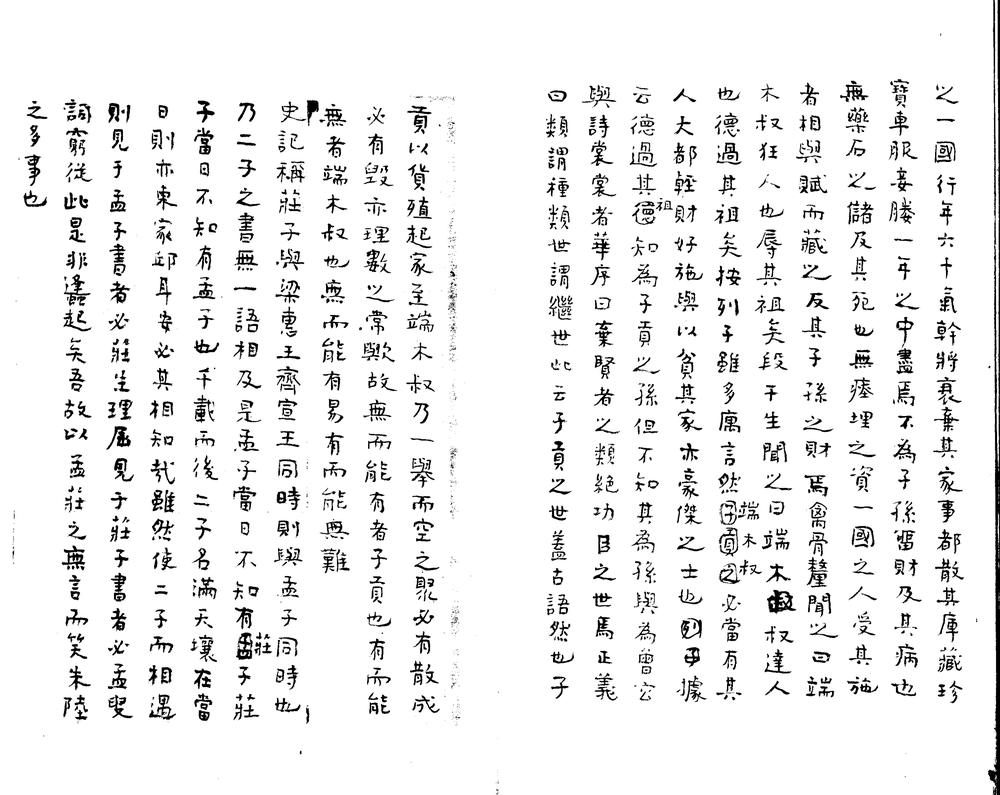 之一國行年六十氣幹將衰棄其家事都散其庫藏珍
寶車服妾媵一年之中盡焉不為子孫留財及其病也
無藥石之儲及其死也無瘞埋之資一國之人受其施
者相與賦而藏之反其子孫之財焉禽骨釐聞之曰端
木叔狂人也辱其祖矣段干生聞之曰端木叔達人
也德過其祖矣按列子雖多寓言然端木叔必當有其
人大都輕財好施與以貧其家亦豪傑之士也列子據
云德過其祖知為子貢之孫但不知其為孫與為曾玄
與詩裳裳者華序曰棄賢者之類絕功臣之世焉正義
曰類謂種類世謂繼世此云子貢之世蓋古語然也子
貢以貨殖起家至端木叔乃一舉而空之聚必有散成
必有毀亦理數之常歟故無而能有者子貢也有而能
無者端木叔也無而能有易有而能無難
史記稱莊子與梁惠王齊宣王同時則與孟子同時也
乃二子之書無一語相及是孟子當日不知有莊子莊
子當日不知有孟子也千載而後二子名滿天壤在當
日則亦東家邱耳安必其相知哉雖然使二子而相遇
則見于孟子書者必莊生理屈見于莊子書者必孟叟
詞窮從此是非蠭起矣吾故以孟莊之無言而笑朱陸
之多事也